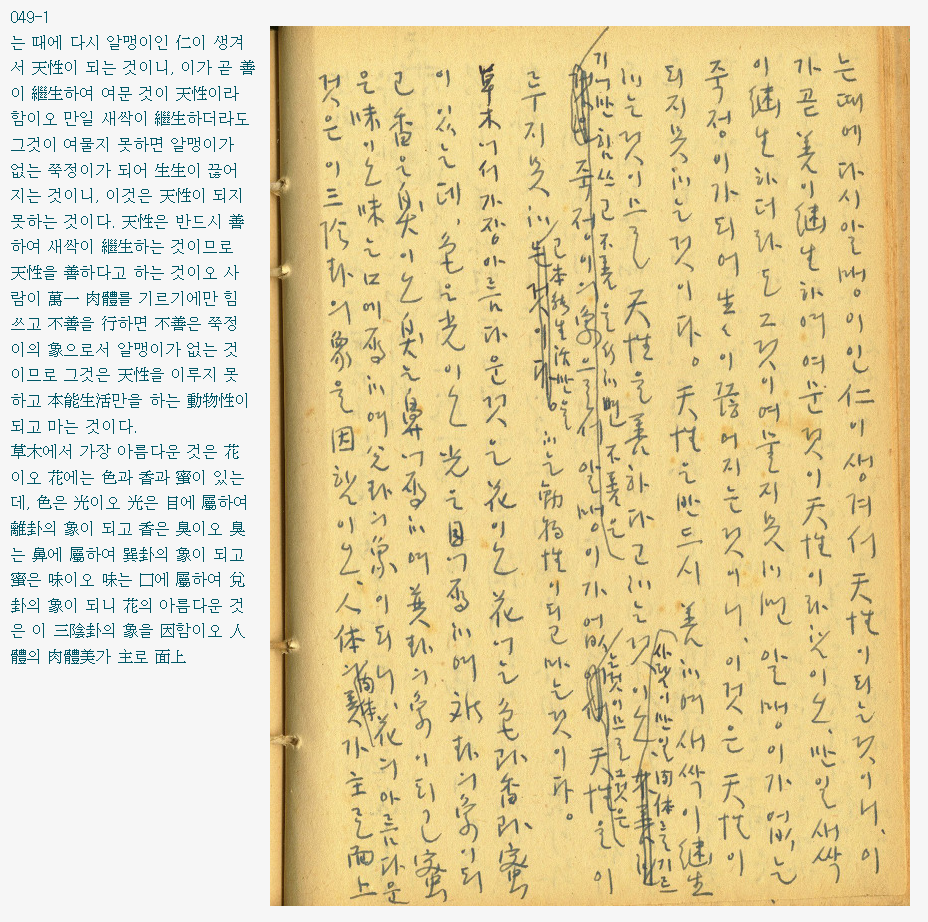 049-1
는 때에 다시 알맹이인 仁이 생겨
서 天性이 되는 것이니, 이가 곧 善
이 繼生하여 여문 것이 天性이라
함이오 만일 새싹이 繼生하더라도
그것이 여물지 못하면 알맹이가
없는 쭉정이가 되어 生生이 끊어
지는 것이니, 이것은 天性이 되지
못하는 것이다. 天性은 반드시 善
하여 새싹이 繼生하는 것이므로
天性을 善하다고 하는 것이오 사
람이 萬一 肉體를 기르기에만 힘
쓰고 不善을 行하면 不善은 쭉정
이의 象으로서 알맹이가 없는 것
이므로 그것은 天性을 이루지 못
하고 本能生活만을 하는 動物性이
되고 마는 것이다.
草木에서 가장 아름다운 것은 花
이오 花에는 色과 香과 蜜이 있는
데, 色은 光이오 光은 目에 屬하여
離卦의 象이 되고 香은 臭이오 臭
는 鼻에 屬하여 巽卦의 象이 되고
蜜은 味이오 味는 口에 屬하여 兌
卦의 象이 되니 花의 아름다운 것
은 이 三陰卦의 象을 因함이오 人
體의 肉體美가 主로 面上
는때에 다시 알맹이인 仁이 생겨서 天性이 되는 것이니, 이
가 곧 善이 繼生하여 여문 것이 天性이라 함이오, 만일 새싹
이 繼生하더라도 그것이 여물지 못하면 알맹이가 없는
쭉정이가 되어 生々이 끊어지는 것이니, 이것은 天性이
되지 못하는 것이다. 天性은 반드시 善하여 새싹이 継生
하는 것이므로 天性을 善하다고 하는 것이오, 사람이 만일 肉体를 기르
기에만 힘쓰고 不善을 行하면 不善은 쭉정이의 象으로서 알맹이가 없는 것이므로 그것은 天性을 이
루지 못하고 本能生活만을 하는 動物性이 되고 마는 것이다.
草木에서 가장 아름다운 것은 花이오 花에는 色과 香과 蜜
이 있는데, 色은 光이오 光은 目에 属하여 離卦의 象이 되
고 香은 臭이오 臭는 鼻에 属하여 巽卦의 象이 되고 蜜
은 味이오 味는 口에 属하여 兌卦의 象이 되니, 花의 아름다운
것은 이 三陰卦의 象을 因함이오, 人体의 肉体美가 主로 面上